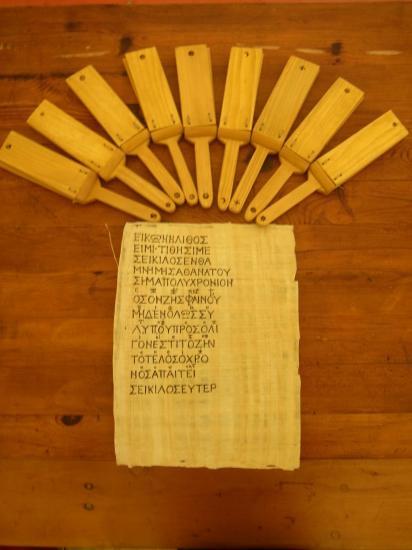 ΕΙΚΩΝΗΛΙΘΟΣ
ΕΙΜΙ·ΤΙΘΗΣΙΜΕ
ΣΕΙΚΙΛΟΣΕΝΘΑ
ΜΝΗΜΗΣΑΘΑΝΑΤΟΥ
ΣΗΜΑΠΟΛΥΧΡΟΝΙΟΝ
ΟΣΟΝΖΗΣΦΑΙΝΟΥ
ΜΗΔΕΝΟΛΩΣΣΥ
ΛΥΠΟΥΠΡΟΣΟΛΙ
ΓΟΝΕΣΤΙΤΟΖΗΝ
ΤΟΤΕΛΟΣΟΧΡΟ
ΝΟΣΑΠΑΙΤΕΙ
ΣΕΙΚΙΛΟΣΕΥΤΕΡ